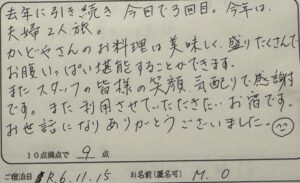 去年に引き続き 今日で3回目。今年は、
夫婦2人旅。
かどやさんのお料理は美味しく、盛りたくさんで
お腹いっぱい堪能することができます。
またスタッフの皆様の笑顔、気配りで感謝
です。また利用させていただきたいお宿です。
お世話になりありがとうございましたー。
10点満点で 9 点
ご宿泊日 R.6.11.15 お名前(匿名可) M.O